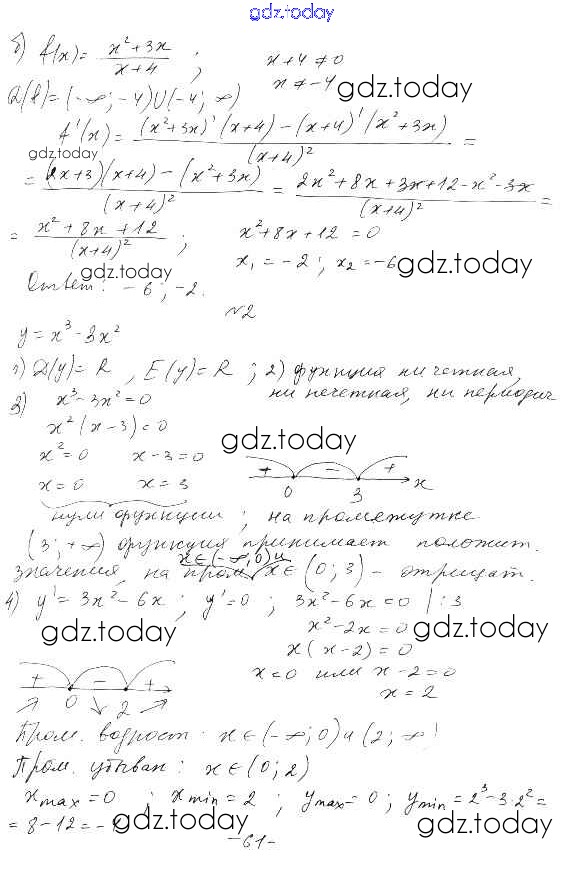 gdz.today
б) f(x) = (x²+3x)/(x+4) ; x+4 ≠ 0
x ≠ -4 gdz.today
D(f) = (-∞; -4)U(-4; ∞)
f'(x) = ((x²+3x)'(x+4) - (x+4)'(x²+3x))/(x+4)² =
gdz.today
= ((2x+3)(x+4) - (x²+3x))/(x+4)² = (2x²+8x+3x+12-x²-3x)/(x+4)² =
= (x²+8x+12)/(x+4)² ; x²+8x+12 = 0
gdz.today x₁ = -2 ; x₂ = -6 gdz.today
Ответ: -6 ; -2.
№2
y = x³-3x²
1) D(y) = R , E(y) = R ; 2) функция ни четная,
ни нечетная, ни периодич
3) x³-3x² = 0
x²(x-3) = 0 gdz.today
x² = 0 x-3 = 0 + - +
x = 0 x = 3 0 3 x
нули функции ; на промежутке
(3; +∞) функция принимает положит.
x∈(-∞;0)и
значения, на пром x∈(0; 3) - отрицат.
4) y' = 3x²-6x ; y' = 0 ; 3x²-6x = 0 | :3
gdz.today x²-2x = 0 gdz.today
x(x-2) = 0
+ - + x = 0 или x-2 = 0
0 2 x = 2
Пром. возрост : x∈(-∞; 0) и (2; ∞)
Пром. убыван : x∈(0; 2)
xmax = 0 ; xmin = 2 ; ymax = 0 ; ymin = 2³-3·2² =
= 8-12 = -4 gdz.today gdz.today
-61-